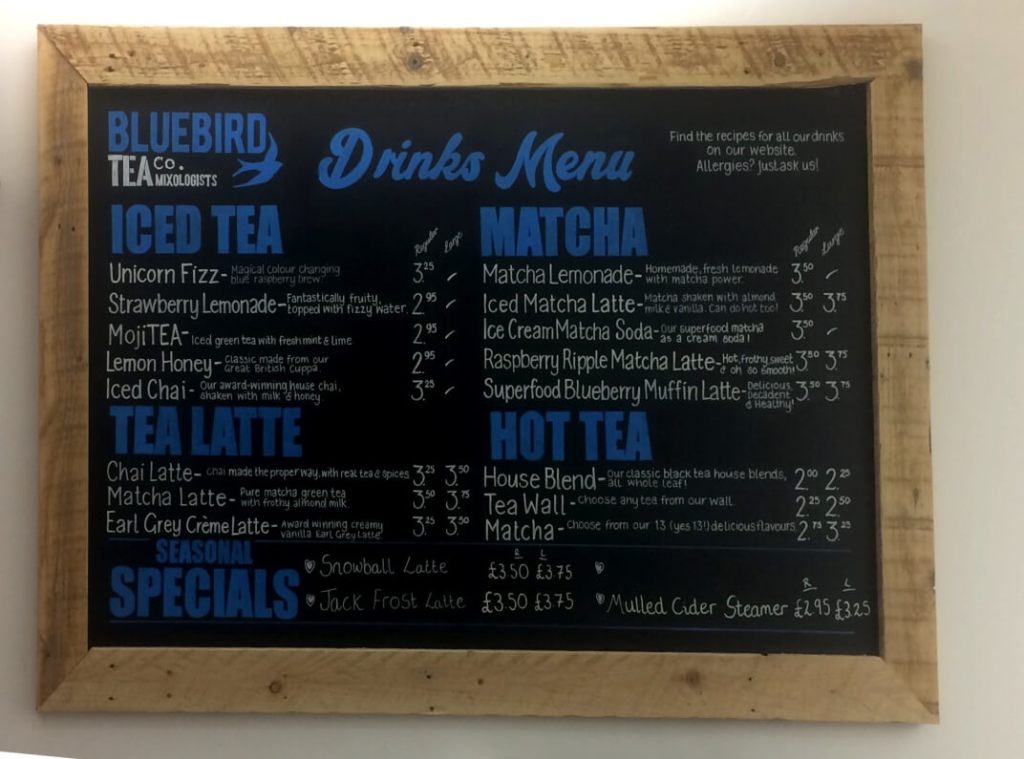 BLUEBIRD
TEA Co.
MIXOLOGISTS
Drinks Menu
Find the recipes for all our drinks
on our website.
Allergies? Just ask us!
ICED TEA
Regular Large
Unicorn Fizz - Magical colour changing blue raspberry brew. 3.25 -
Strawberry Lemonade - Fantastically fruity, topped with fizzy water. 2.95 -
MojiTEA - Iced green tea with fresh mint & lime 2.95 -
Lemon Honey - Classic made from our Great British Cuppa. 2.95 -
Iced Chai - Our award-winning house chai, shaken with milk & honey. 3.25 -
MATCHA
Regular Large
Matcha Lemonade - Homemade, fresh lemonade with matcha power. 3.50 -
Iced Matcha Latte - Matcha shaken with almond milk & vanilla. Can do hot too! 3.50 3.75
Ice Cream Matcha Soda - Our superfood matcha as a cream soda! 3.50 -
Raspberry Ripple Matcha Latte - Hot, frothy sweet & oh so smooth! 3.50 3.75
Superfood Blueberry Muffin Latte - Delicious, Decadent & Healthy! 3.50 3.75
TEA LATTE
Chai Latte - Chai made the proper way, with real tea & spices 3.25 3.50
Matcha Latte - Pure matcha green tea with frothy almond milk. 3.50 3.75
Earl Grey Crème Latte - Award winning creamy vanilla Earl Grey Latte 3.25 3.50
HOT TEA
House Blend - Our classic black tea house blends, all whole leaf! 2.00 2.25
Tea Wall - Choose any tea from our wall. 2.25 2.50
Matcha - Choose from our 13 (yes 13!) delicious flavours. 2.75 3.25
SEASONAL
SPECIALS
R L
Snowball Latte £3.50 £3.75
Jack Frost Latte £3.50 £3.75
R L
Mulled Cider Steamer £2.95 £3.25